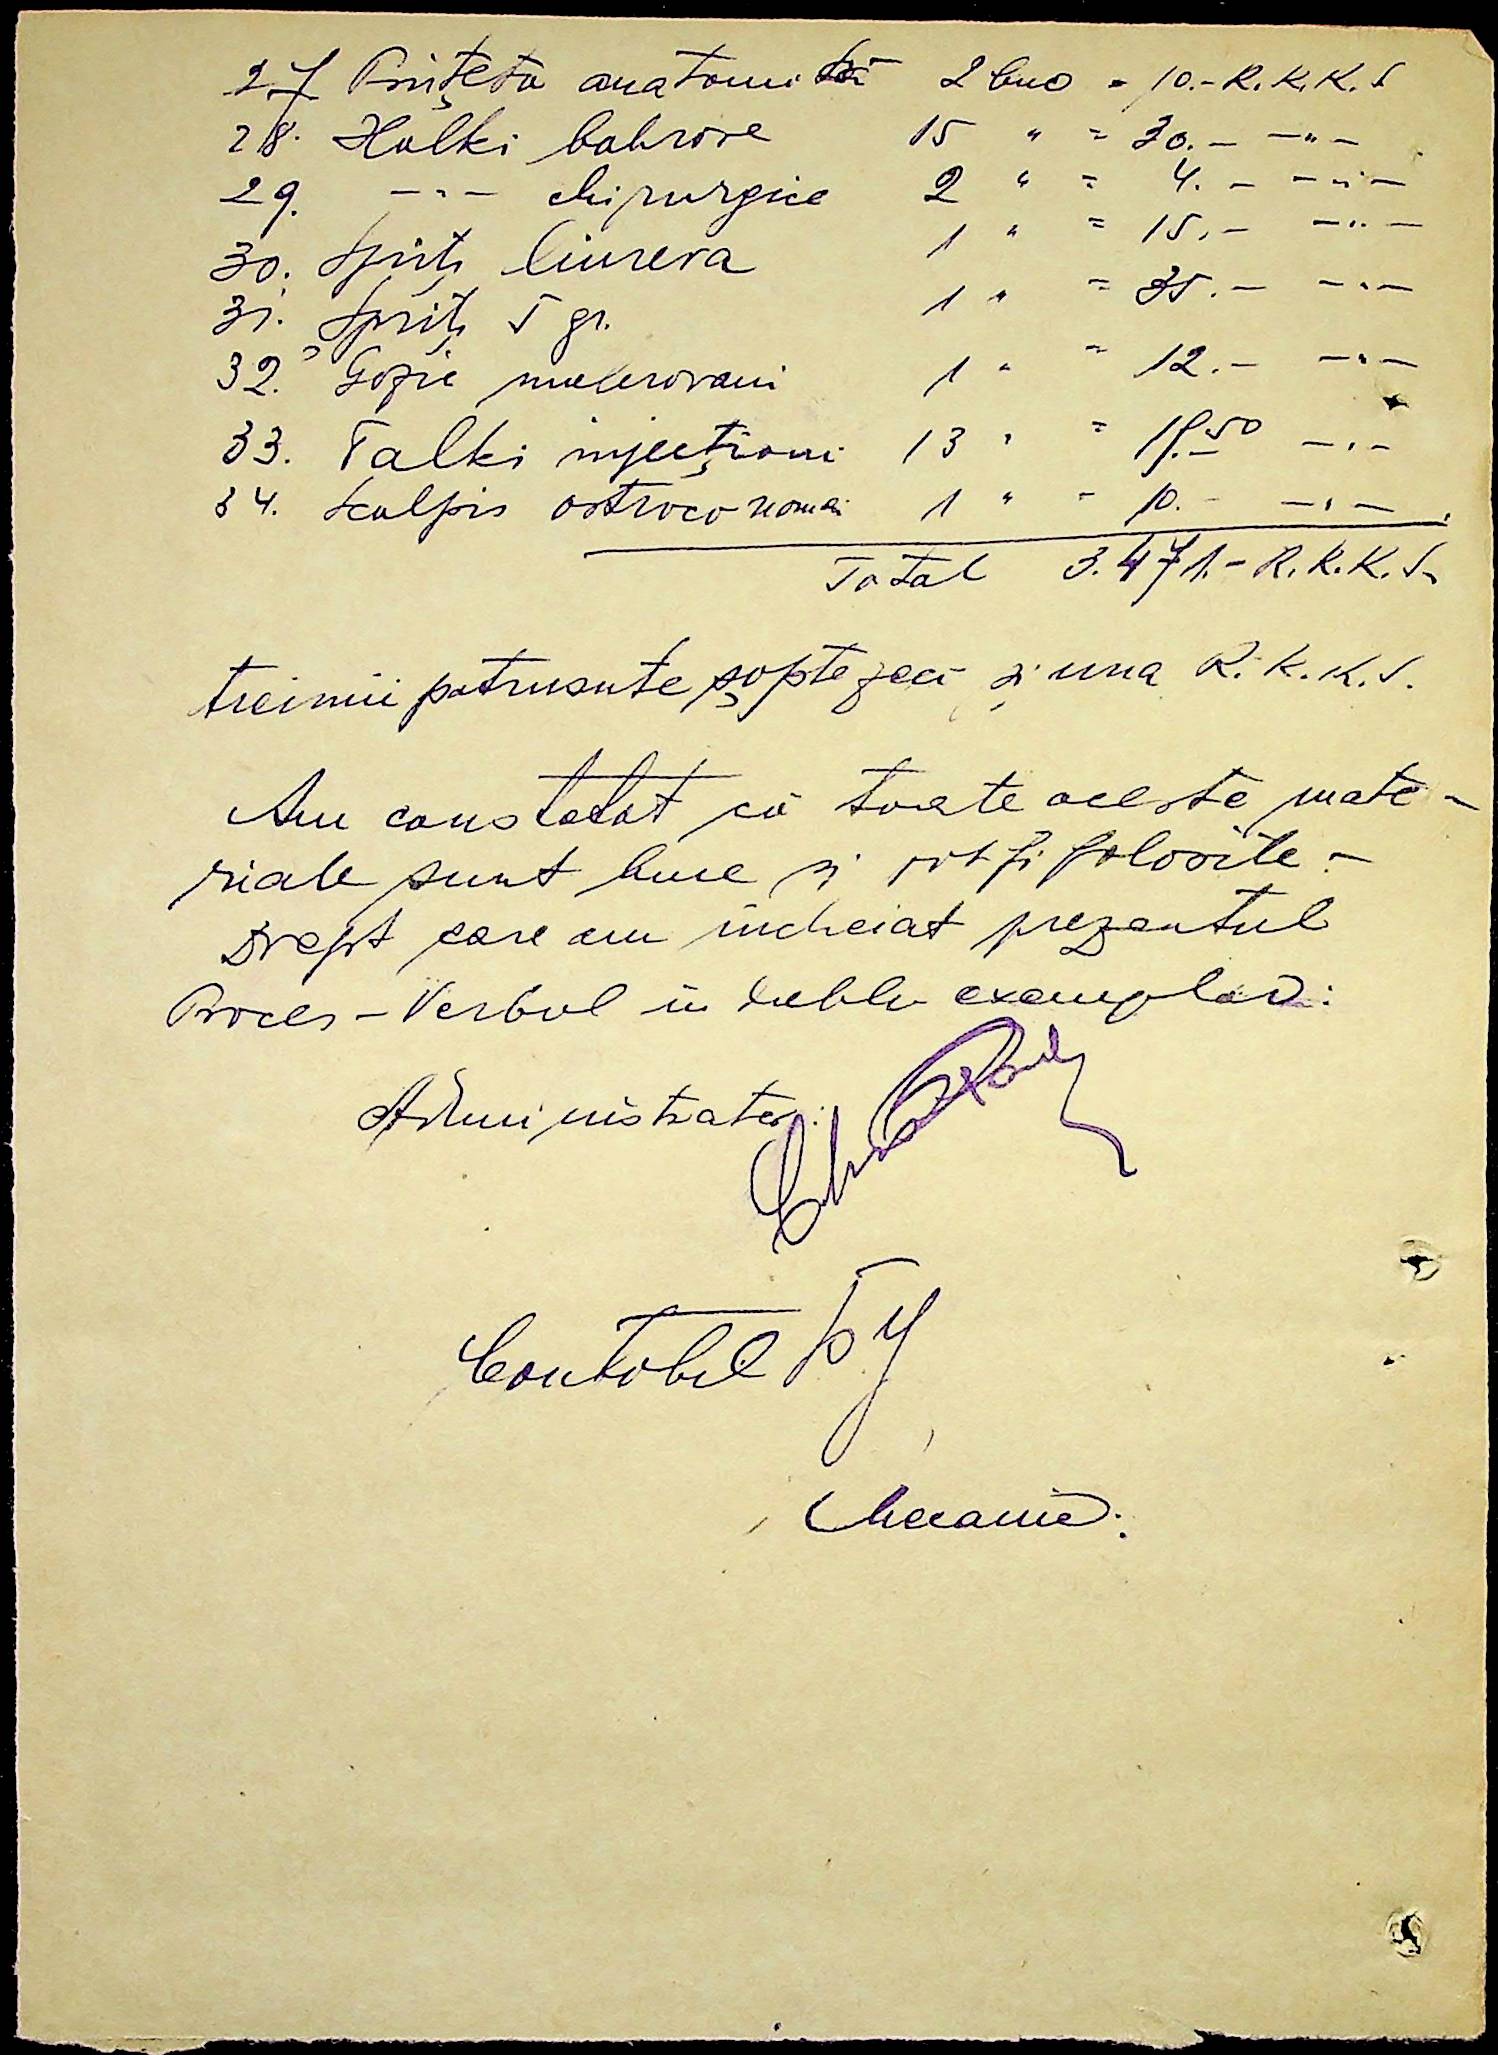 27 Pințeta anatomi 2 buc = 10.- R.K.K.S
28. Halki bahrove 15 " = 30.- -"-
29. -"- chirurgice 2 " = 4.- -"-
30. Spriț 1 " = 15.- -"-
31. Spriț 5 gr. 1 " = 35.- -"-
32. 1 " = 12.- -"-
33. Talki injecționi 13 " = 19.50 -"-
34. Scalpis 1 " = 10.- -"-
Total 3.471.- R.K.K.S.
treimii patrusute șaptezeci și una R.K.K.S.
Am constatat că toate aceste mate-
riale sunt bune și pot fi folosite.-
Drept care am incheiat prezentul
Proces-Verbal in dublu exemplar:
Administrator:
Contabil
Mecanic: